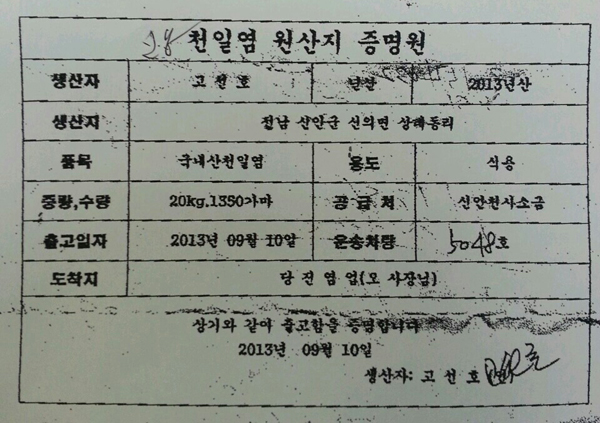 천일염 원산지 증명원
생산자 고선호 년산 2013년산
생산지 전남 신안군 신의면 상태동리
품목 국내산천일염 용도 식용
중량,수량 20kg.1350가마 공급처 신안천사소금
출고일자 2013년 09월 10일 운송차량 5048호
도착지 당진염업(모 사장님)
상기와 같이 출고함을 증명합니다
2013년 09월 10일
생산자: 고 선 호